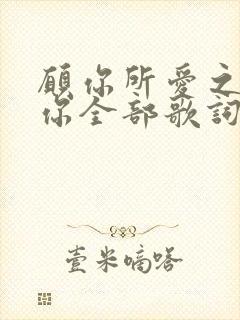 願你所愛之
你全部歌詞
壹米嘀嗒